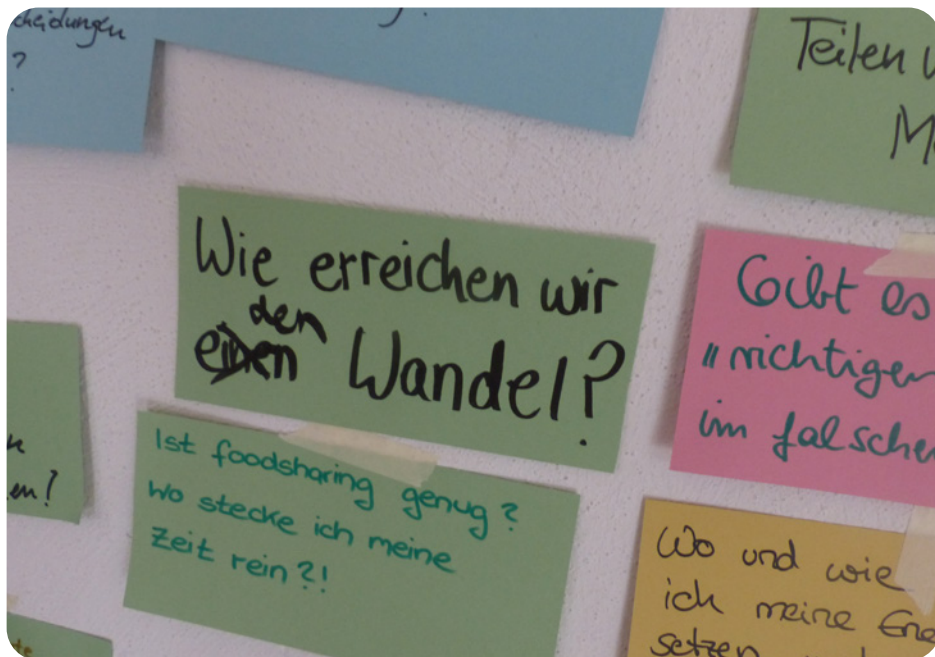 cheidungen
?
Teilen
Wie erreichen wir
den
einen Wandel?
Gibt es
"richtigen
im falschen
en!
Ist foodsharing genug?
Wo stecke ich meine
Zeit rein?!
Wo und wie
ich meine Ene
setzen